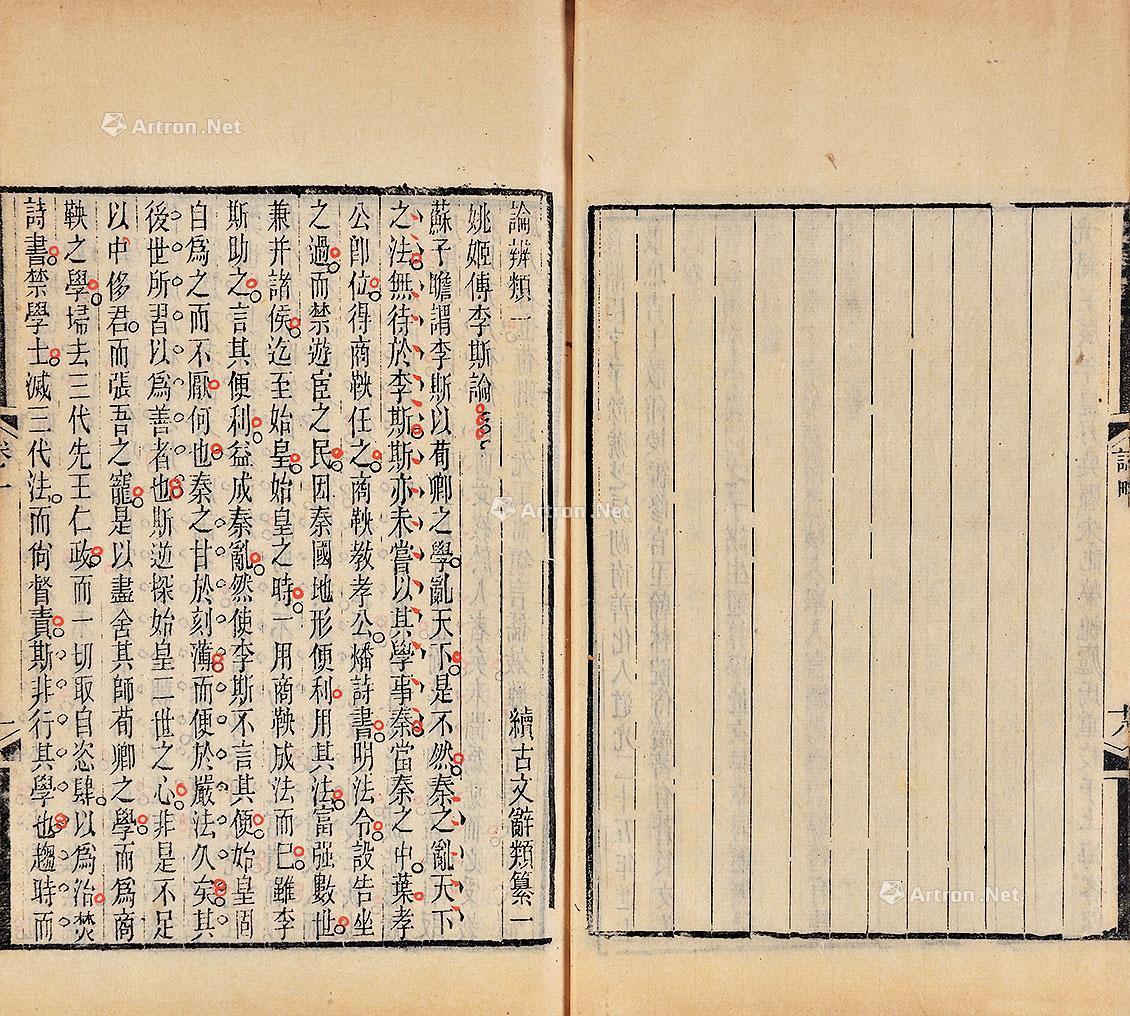 論辨類一 續古文辭類纂一
姚姬傳李斯論
蘇子瞻謂李斯以荀卿之學亂天下是不然秦之亂天下
之法無待於李斯斯亦未嘗以其學事秦當秦之中葉孝
公卽位得商鞅任之商鞅敎孝公燔詩書明法令設告坐
之過而禁遊宦之民因秦國地形便利用其法富强數世
兼并諸侯迄至始皇始皇之時一用商鞅成法而已雖李
斯助之言其便利益成秦亂然使李斯不言其便始皇固
自爲之而不厭何也秦之甘於刻薄而便於嚴法久矣其
後世所習以爲善者也斯逆探始皇二世之心非是不足
以中侈君而張吾之寵是以盡舍其師荀卿之學而爲商
鞅之學埽去三代先王仁政而一切取自恣肆以爲治焚
詩書禁學士滅三代法而尚督責斯非行其學也趨時而
Artron.Net
Artron.Net
Artron.Net
Artron.Net